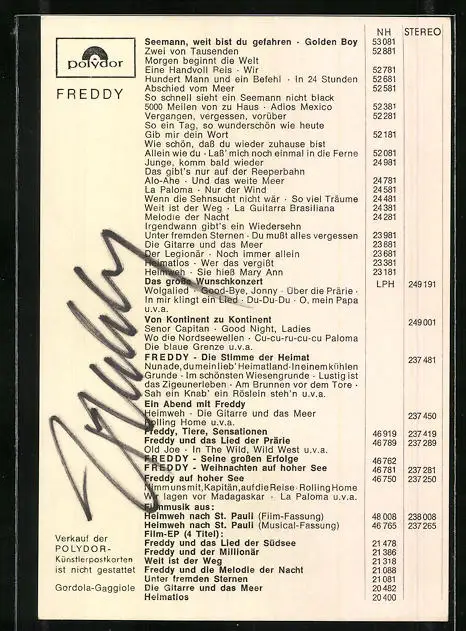 NH STEREO
polydor
FREDDY
Seemann, weit bist du gefahren · Golden Boy 53 081
Zwei von Tausenden 52 881
Morgen beginnt die Welt
Eine Handvoll Reis · Wir 52 781
Hundert Mann und ein Befehl · In 24 Stunden 52 681
Abschied vom Meer 52 581
So schnell sieht ein Seemann nicht black
5000 Meilen von zu Haus · Adios Mexico 52 381
Vergangen, vergessen, vorüber 52 281
So ein Tag, so wunderschön wie heute
Gib mir dein Wort 52 181
Wie schön, daß du wieder zuhause bist
Allein wie du · Laß' mich noch einmal in die Ferne 52 081
Junge, komm bald wieder 24 981
Das gibt's nur auf der Reeperbahn
Alo-Ahe · Und das weite Meer 24 781
La Paloma · Nur der Wind 24 581
Wenn die Sehnsucht nicht wär · So viel Träume 24 481
Weit ist der Weg · La Guitarra Brasiliana 24 381
Melodie der Nacht 24 281
Irgendwann gibt's ein Wiedersehn
Unter fremden Sternen · Du mußt alles vergessen 23 981
Die Gitarre und das Meer 23 881
Der Legionär · Noch immer allein 23 681
Heimatlos · Wer das vergißt 23 381
Heimweh · Sie hieß Mary Ann 23 181
Das große Wunschkonzert LPH 249 191
Wolgalied · Good-Bye, Jonny · Über die Prärie ·
In mir klingt ein Lied · Du-Du-Du · O, mein Papa
u.v.a.
Von Kontinent zu Kontinent 249 001
Senor Capitan · Good Night, Ladies
Wo die Nordseewellen · Cu-cu-ru-cu-cu Paloma
Die blaue Grenze u.v.a.
FREDDY - Die Stimme der Heimat 237 481
Nun ade, du mein lieb' Heimatland · In einem kühlen
Grunde · Im schönsten Wiesengrunde · Lustig ist
das Zigeunerleben · Am Brunnen vor dem Tore ·
Sah ein Knab' ein Röslein steh'n u.v.a.
Ein Abend mit Freddy
Heimweh · Die Gitarre und das Meer 237 450
Rolling Home u.v.a.
Freddy, Tiere, Sensationen 46 919 237 419
Freddy und das Lied der Prärie 46 789 237 289
Old Joe · In The Wild, Wild West u.v.a.
FREDDY - Seine großen Erfolge 46 762
FREDDY - Weihnachten auf hoher See 46 781 237 281
Freddy auf hoher See 46 750 237 250
Nimm uns mit, Kapitän, auf die Reise · Rolling Home
Wir lagen vor Madagaskar · La Paloma u.v.a.
Filmmusik aus:
Heimweh nach St. Pauli (Film-Fassung) 48 008 238 008
Heimweh nach St. Pauli (Musical-Fassung) 46 765 237 265
Film-EP (4 Titel):
Freddy und das Lied der Südsee 21 478
Freddy und der Millionär 21 386
Weit ist der Weg 21 318
Freddy und die Melodie der Nacht 21 088
Unter fremden Sternen 21 081
Die Gitarre und das Meer 20 482
Heimatlos 20 400
Verkauf der
POLYDOR-
Künstlerpostkarten
ist nicht gestattet
Gordola-Gaggiole
Freddy